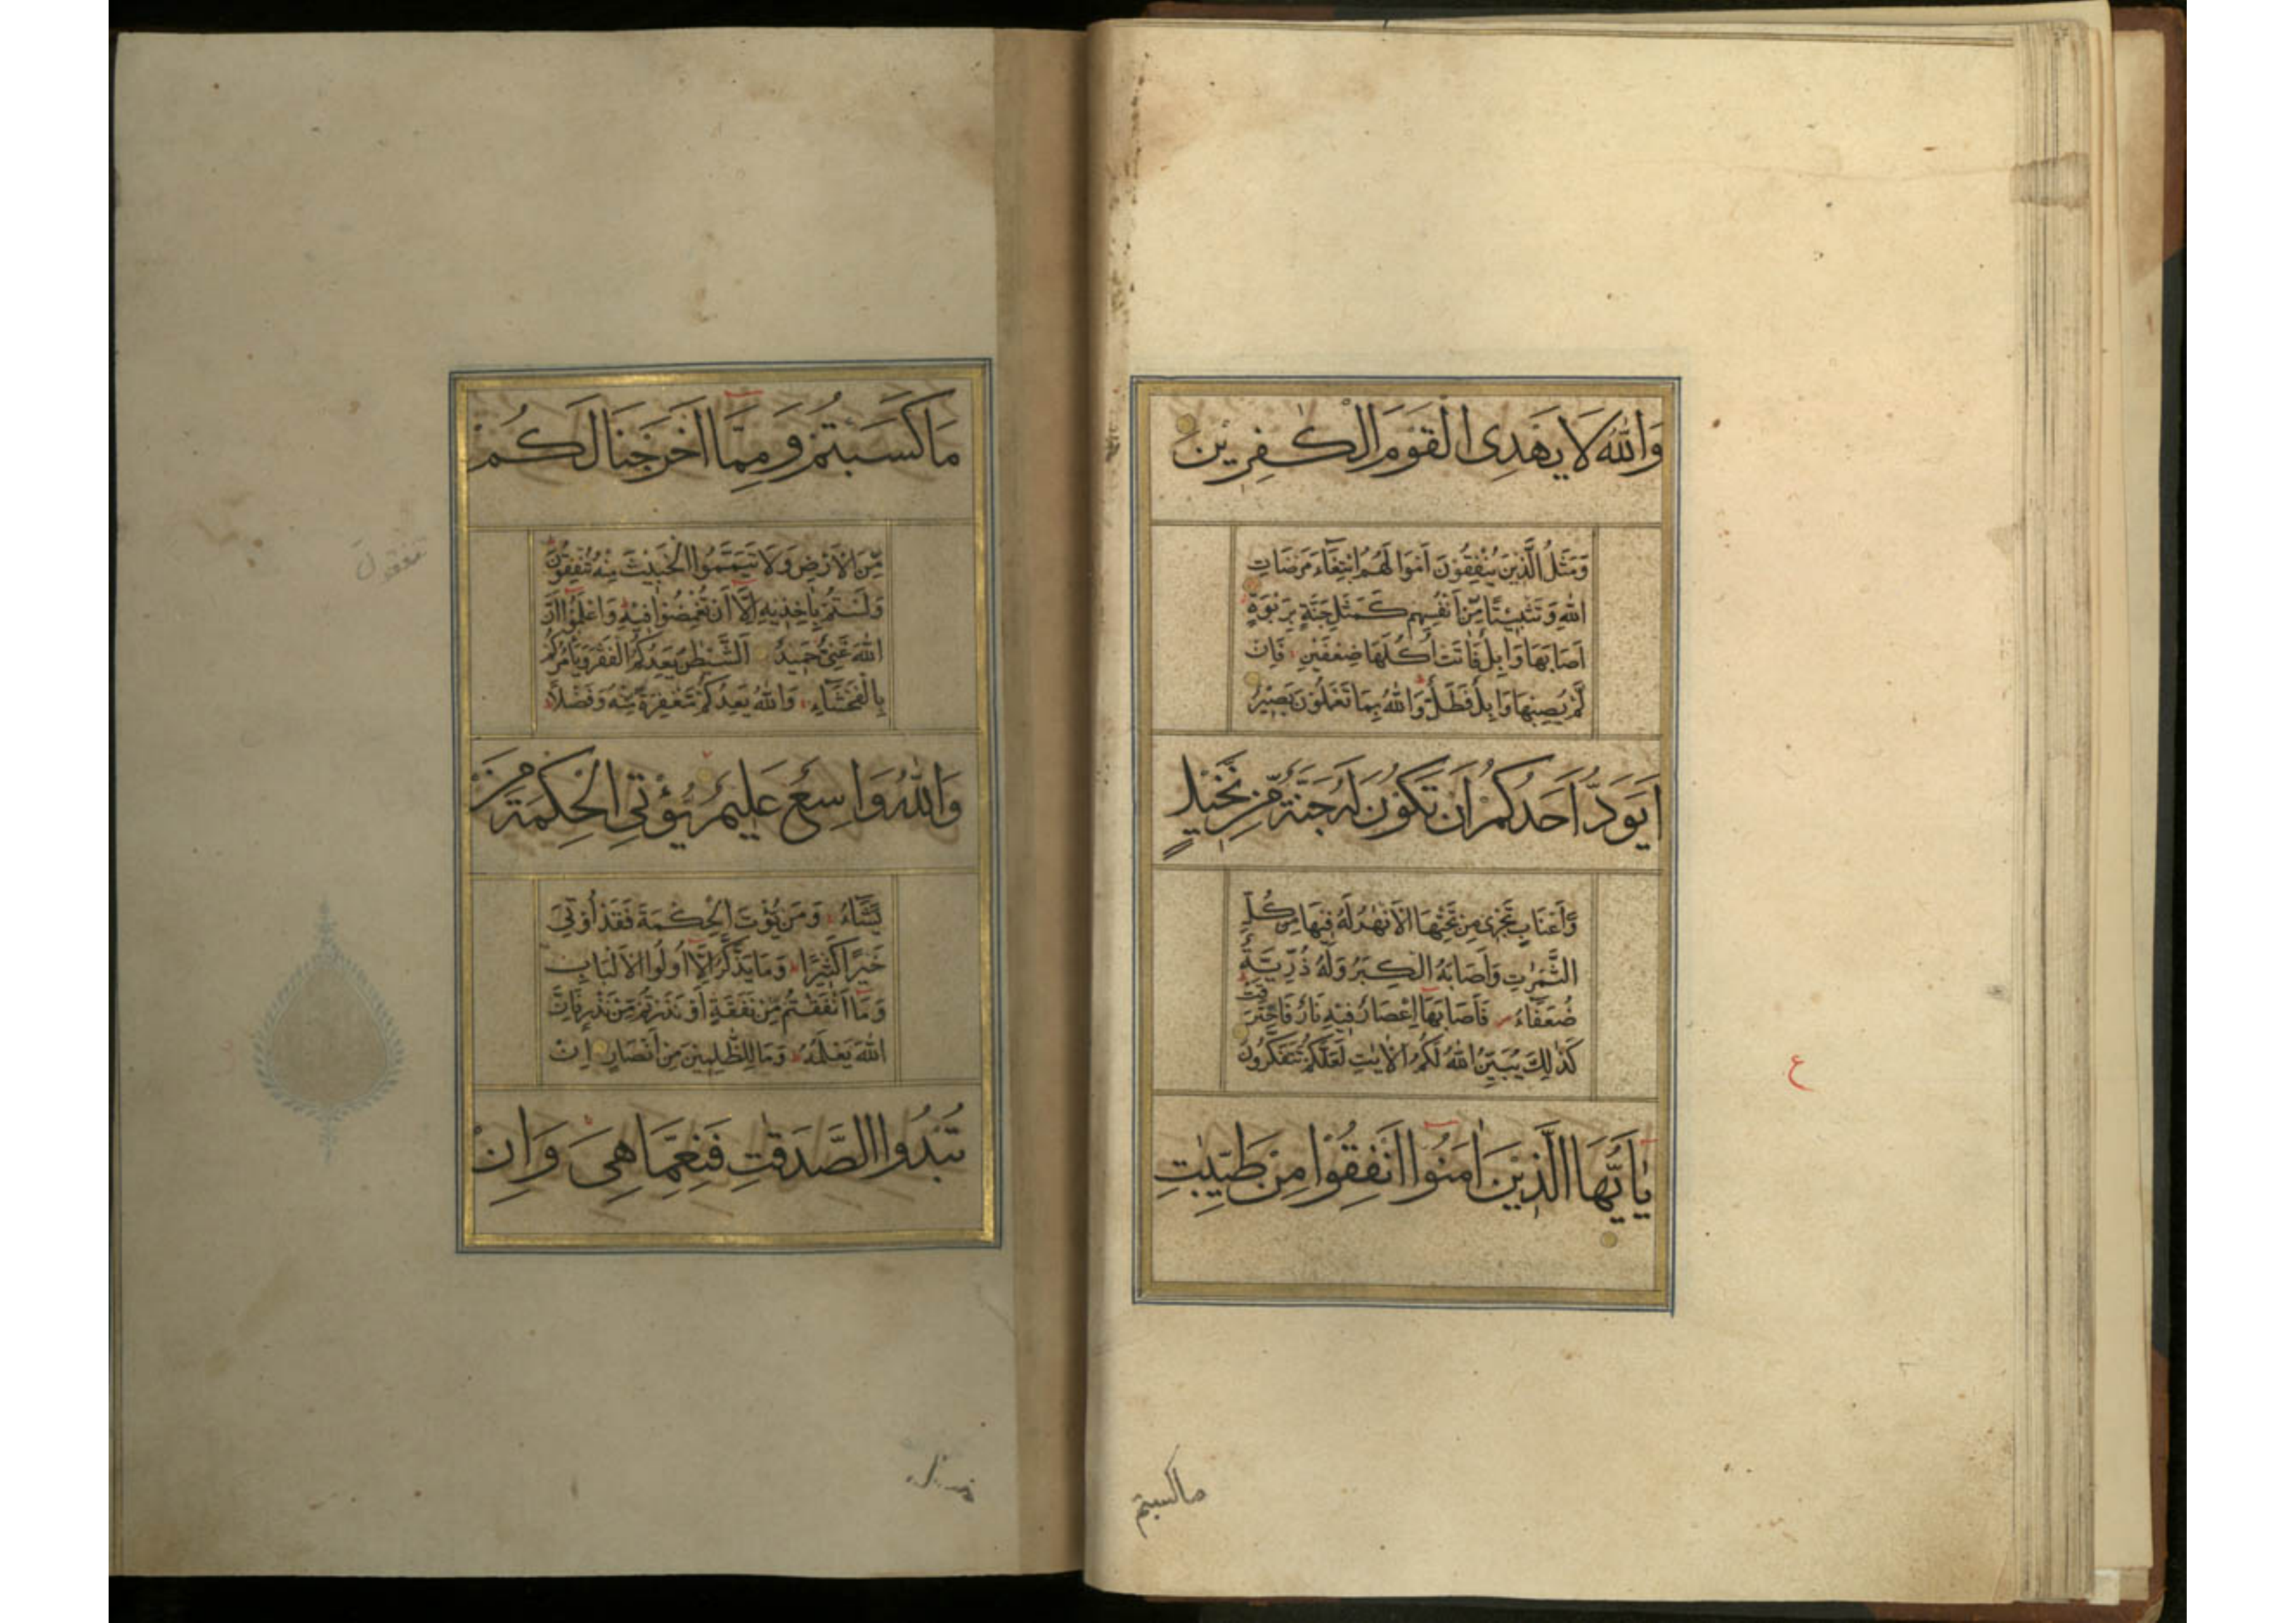 وَاللّٰهُ لَا يَهْدِى الْقَوْمَ الْكٰفِرِيْنَ
وَمَثَلُ الَّذِيْنَ يُنْفِقُوْنَ اَمْوَالَهُمُ ابْتِغَآءَ مَرْضَاتِ
اللّٰهِ وَتَثْبِيْتًا مِّنْ اَنْفُسِهِمْ كَمَثَلِ جَنَّةٍ بِرَبْوَةٍ
اَصَابَهَا وَابِلٌ فَاٰتَتْ اُكُلَهَا ضِعْفَيْنِ فَاِنْ
لَّمْ يُصِبْهَا وَابِلٌ فَطَلٌّ وَاللّٰهُ بِمَا تَعْمَلُوْنَ بَصِيْرٌ
اَيَوَدُّ اَحَدُكُمْ اَنْ تَكُوْنَ لَهُ جَنَّةٌ مِّنْ نَّخِيْلٍ
وَّاَعْنَابٍ تَجْرِىْ مِنْ تَحْتِهَا الْاَنْهٰرُ لَهُ فِيْهَا مِنْ كُلِّ
الثَّمَرٰتِ وَاَصَابَهُ الْكِبَرُ وَلَهُ ذُرِّيَّةٌ
ضُعَفَآءُ فَاَصَابَهَا اِعْصَارٌ فِيْهِ نَارٌ فَاحْتَرَقَتْ
كَذٰلِكَ يُبَيِّنُ اللّٰهُ لَكُمُ الْاٰيٰتِ لَعَلَّكُمْ تَتَفَكَّرُوْنَ
يٰاَيُّهَا الَّذِيْنَ اٰمَنُوْا اَنْفِقُوْا مِنْ طَيِّبٰتِ
ع
ماكسبتم
مَا كَسَبْتُمْ وَمِمَّا اَخْرَجْنَا لَكُمْ
مِّنَ الْاَرْضِ وَلَا تَيَمَّمُوا الْخَبِيْثَ مِنْهُ تُنْفِقُوْنَ
وَلَسْتُمْ بِاٰخِذِيْهِ اِلَّا اَنْ تُغْمِضُوْا فِيْهِ وَاعْلَمُوْا اَنَّ
اللّٰهَ غَنِىٌّ حَمِيْدٌ اَلشَّيْطٰنُ يَعِدُكُمُ الْفَقْرَ وَيَأْمُرُكُمْ
بِالْفَحْشَآءِ وَاللّٰهُ يَعِدُكُمْ مَّغْفِرَةً مِّنْهُ وَفَضْلًا
وَاللّٰهُ وَاسِعٌ عَلِيْمٌ يُؤْتِى الْحِكْمَةَ مَنْ
يَّشَآءُ وَمَنْ يُؤْتَ الْحِكْمَةَ فَقَدْ اُوْتِىَ
خَيْرًا كَثِيْرًا وَمَا يَذَّكَّرُ اِلَّا اُولُوا الْاَلْبَابِ
وَمَا اَنْفَقْتُمْ مِّنْ نَّفَقَةٍ اَوْ نَذَرْتُمْ مِّنْ نَّذْرٍ فَاِنَّ
اللّٰهَ يَعْلَمُهُ وَمَا لِلظّٰلِمِيْنَ مِنْ اَنْصَارٍ اِنْ
تُبْدُوا الصَّدَقٰتِ فَنِعِمَّا هِىَ وَاِنْ